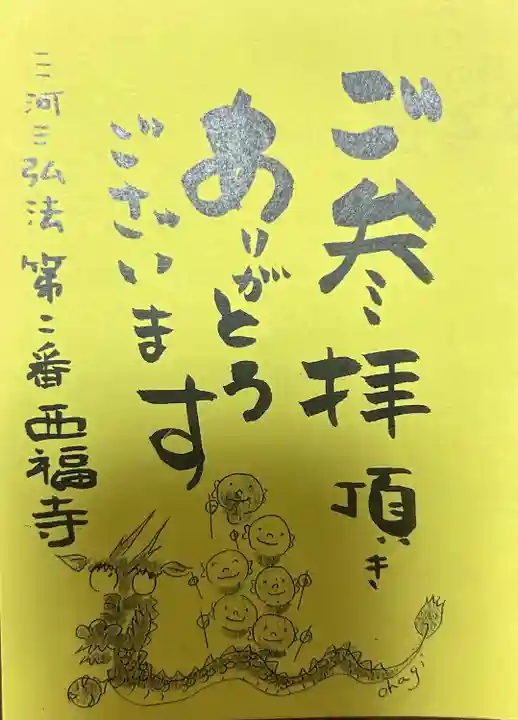 ご参拝頂き
ありがとう
ございます
三河三弘法第二番西福寺
ohagi